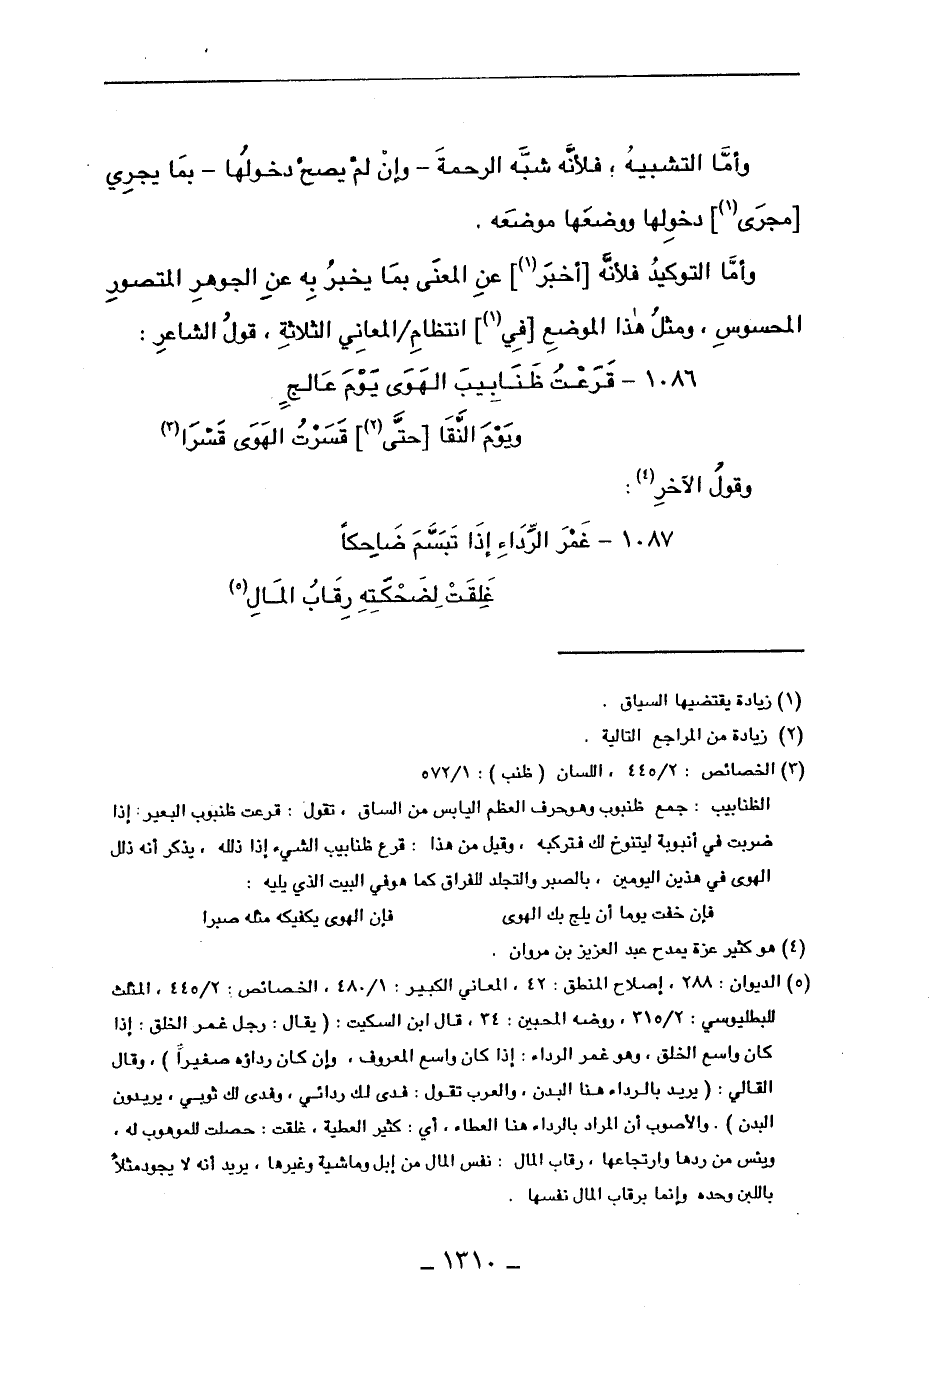 وأمَّا التشبيهُ ؛ فلأنَّه شبَّه الرحمةَ – وإنْ لمْ يصحْ دخولُها – بمَا يجرِي
[مجرَى(١)] دخولِها ووضعَها موضعَه .
وأمَّا التوكيدُ فلأنَّه [أخبَرَ(١)] عنِ المعنَى بمَا يخبرُ بِه عنِ الجوهرِ المتصورِ
المحسوسِ ، ومثلُ هٰذا الموضعِ [فِي(١)] انتظامِ/المعانِي الثلاثةِ ، قولُ الشاعرِ :
١٠٨٦ – قَرَعْتُ ظَنَابِيبَ الهَوَى يَوْمَ عَالجٍ
ويَوْمَ النَّقَا [حتَّى(٢)] قَسَرْتُ الهَوَى قَسْرَا(٣)
وقولُ الآخرِ(٤) :
١٠٨٧ – غَمْرَ الرِّدَاءِ إذَا تَبَسَّمَ ضَاحِكاً
غَلِقَتْ لِضَحْكَتِهِ رِقَابُ المَالِ(٥)
(١) زيادة يقتضيها السياق .
(٢) زيادة من المراجع التالية .
(٣) الخصائص : ٤٤٥/٢ ، اللسان ( ظنب ) : ٥٧٢/١
الظنابيب : جمع ظنبوب وهوحرف العظم اليابس من الساق ، تقول : قرعت ظنبوب البعير : إذا
ضربت في أنبوبة ليتنوخ لك فتركبه ، وقيل من هذا : قرع ظنابيب الشيء إذا ذلله ، يذكر أنه ذلل
الهوى في هذين اليومين ، بالصبر والتجلد للفراق كما هوفي البيت الذي يليه :
فإن خفت يوما أن يلج بك الهوى فإن الهوى يكفيكه مثله صبرا
(٤) هو كثير عزة يمدح عبد العزيز بن مروان .
(٥) الديوان : ٢٨٨ ، إصلاح المنطق : ٤٢ ، المعاني الكبير : ٤٨٠/١ ، الخصائص : ٤٤٥/٢ ، المثلث
للبطليوسي : ٣١٥/٢ ، روضه المحبين : ٣٤ ، قال ابن السكيت : ( يقال : رجل غمر الخلق : إذا
كان واسع الخلق ، وهو غمر الرداء : إذا كان واسع المعروف ، وإن كان رداؤه صغيراً ) ، وقال
القالي : ( يريد بالرداء هنا البدن ، والعرب تقول : فدى لك ردائي ، وفدى لك ثوبي ، يريدون
البدن ) . والأصوب أن المراد بالرداء هنا العطاء ، أي : كثير العطية ، غلقت : حصلت للموهوب له ،
ويئس من ردها وارتجاعها ، رقاب المال : نفس المال من إبل وماشية وغيرها ، يريد أنه لا يجودمثلاً
باللبن وحده وإنما برقاب المال نفسها .
– ١٣١٠ –